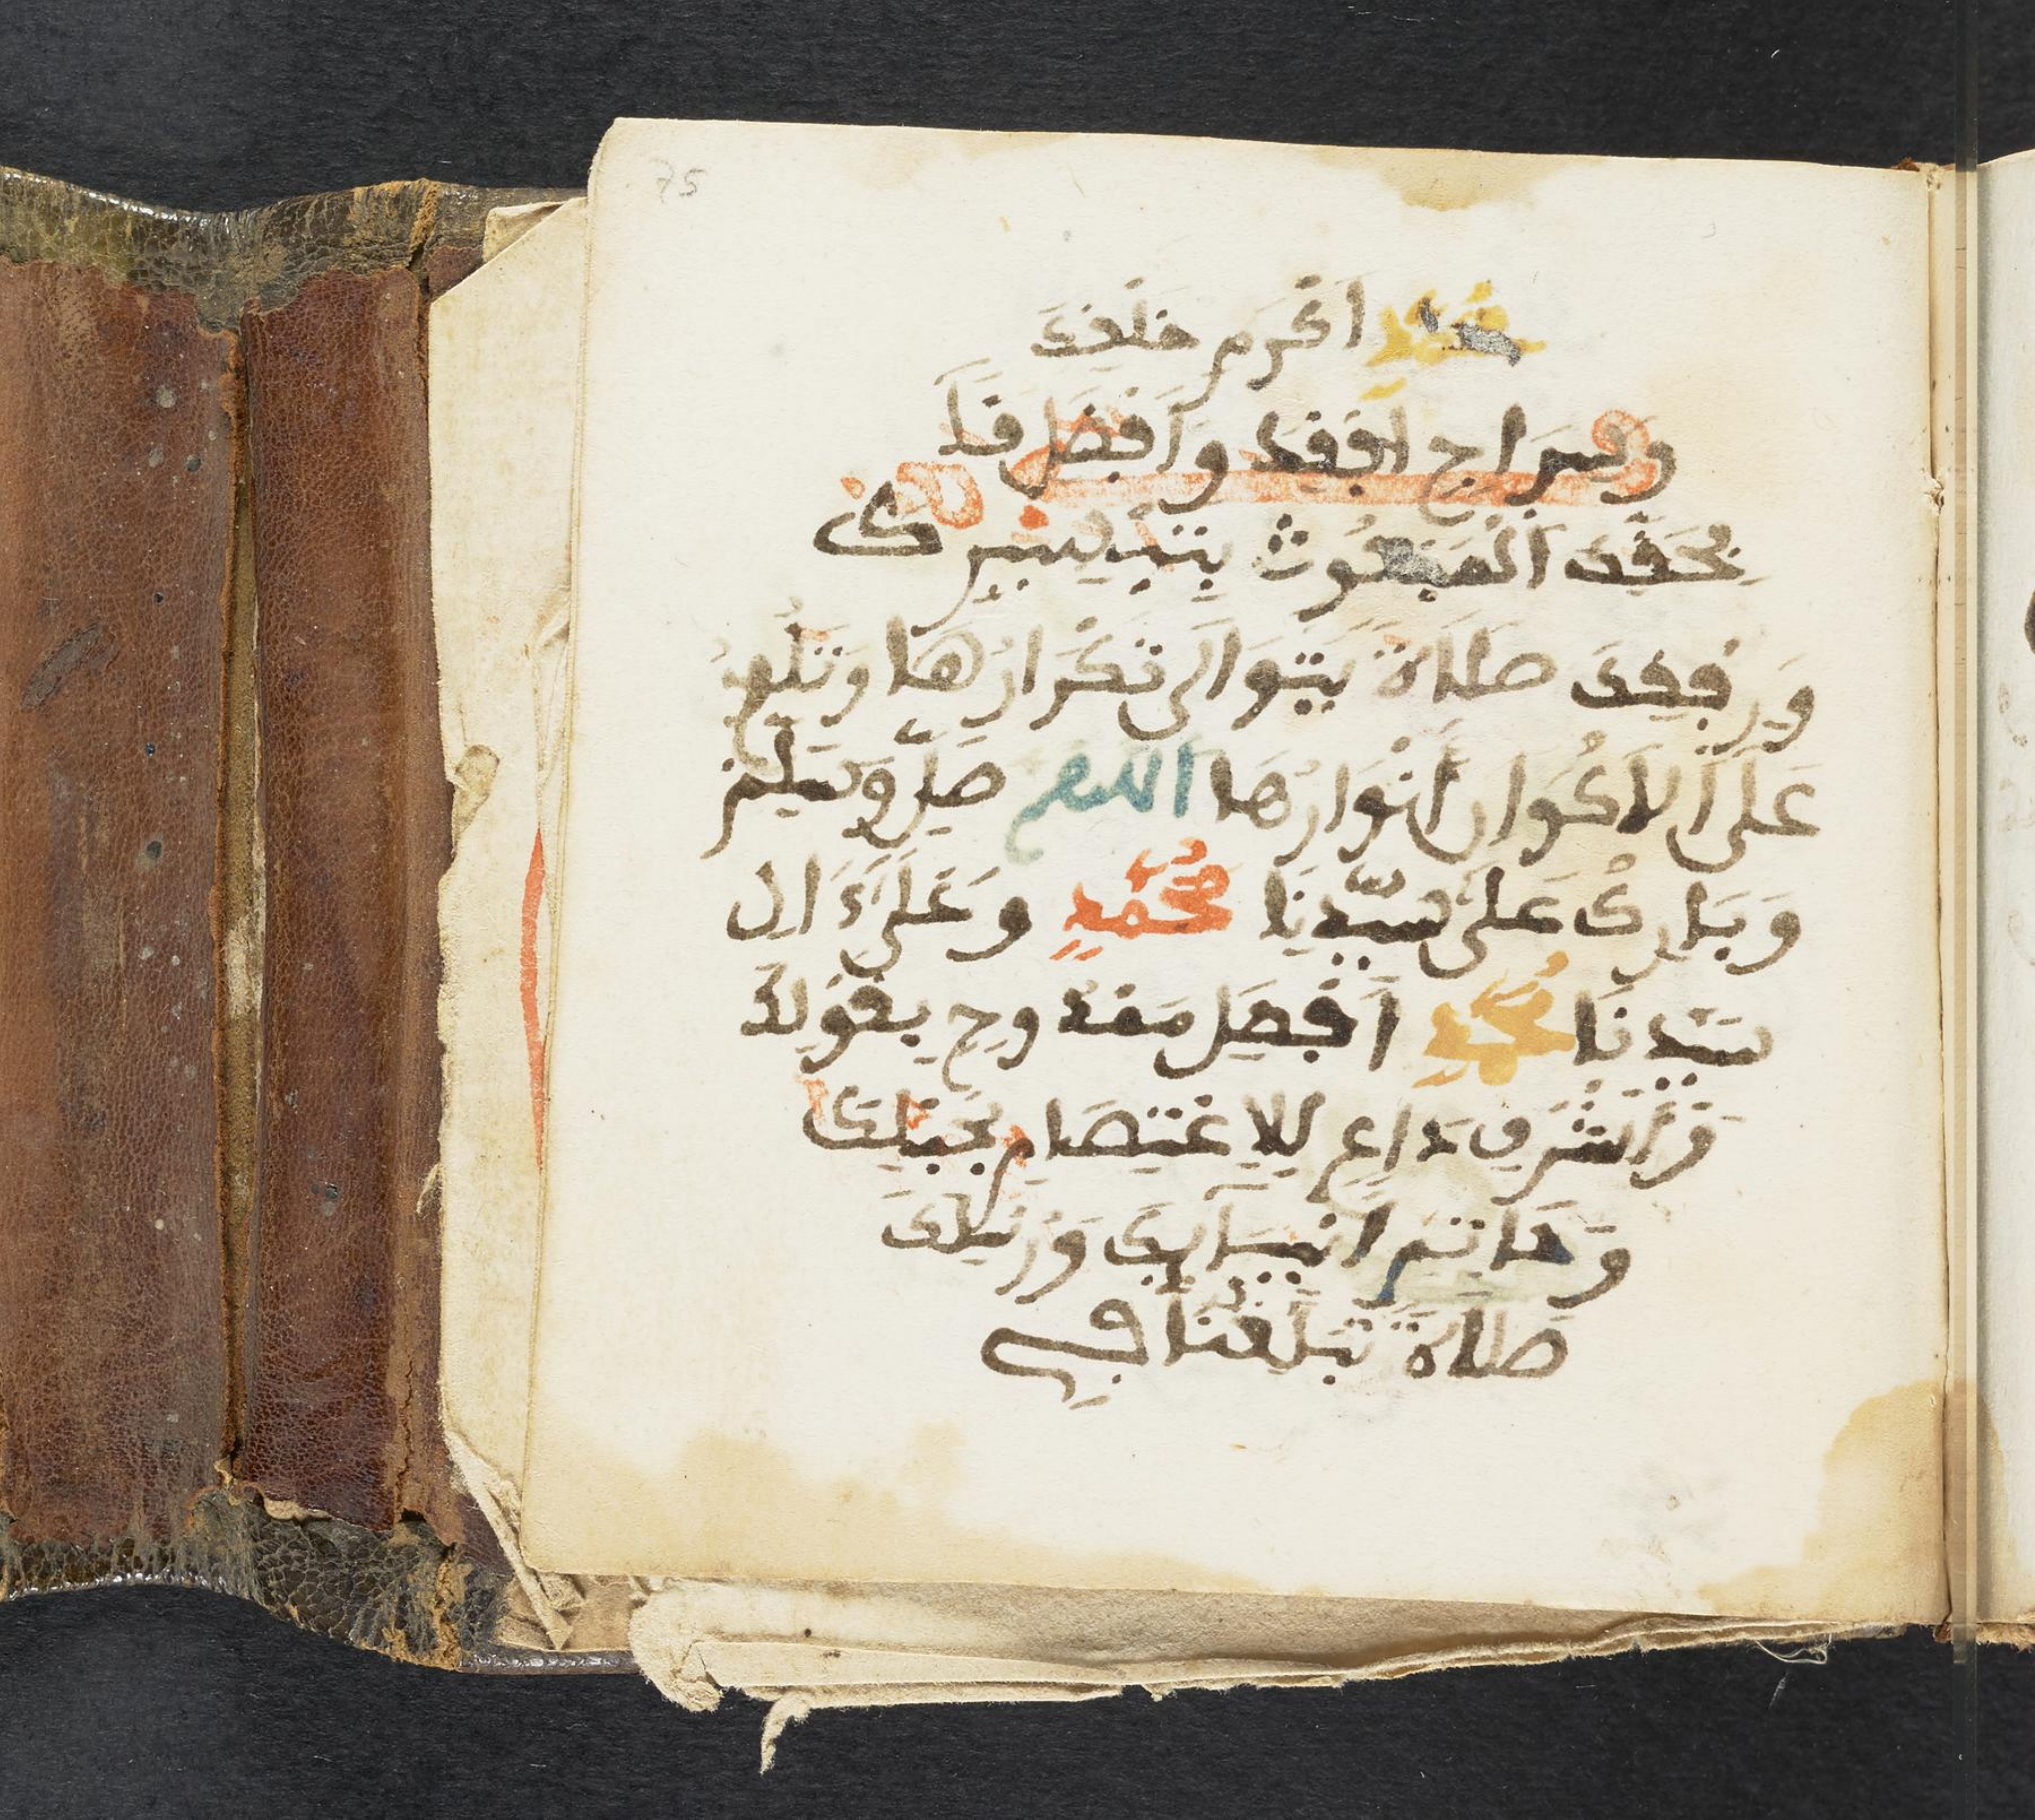 75
محمد اكرم خلفك
وسراج افقك وافضل قا
بحقك المبعوث بتيسيرك
ورفقك صلاة يتوالى تكرارها وتلوح
على الاكوان انوارها اللهم صل وسلم
وبارك على سيدنا محمد وعلى ءال
سيدنا محمد افضل ممدوح بقولك
واشرف داع للاعتصام بحبلك
وخاتم انبيايك ورسلك
صلاة تبلغنا في